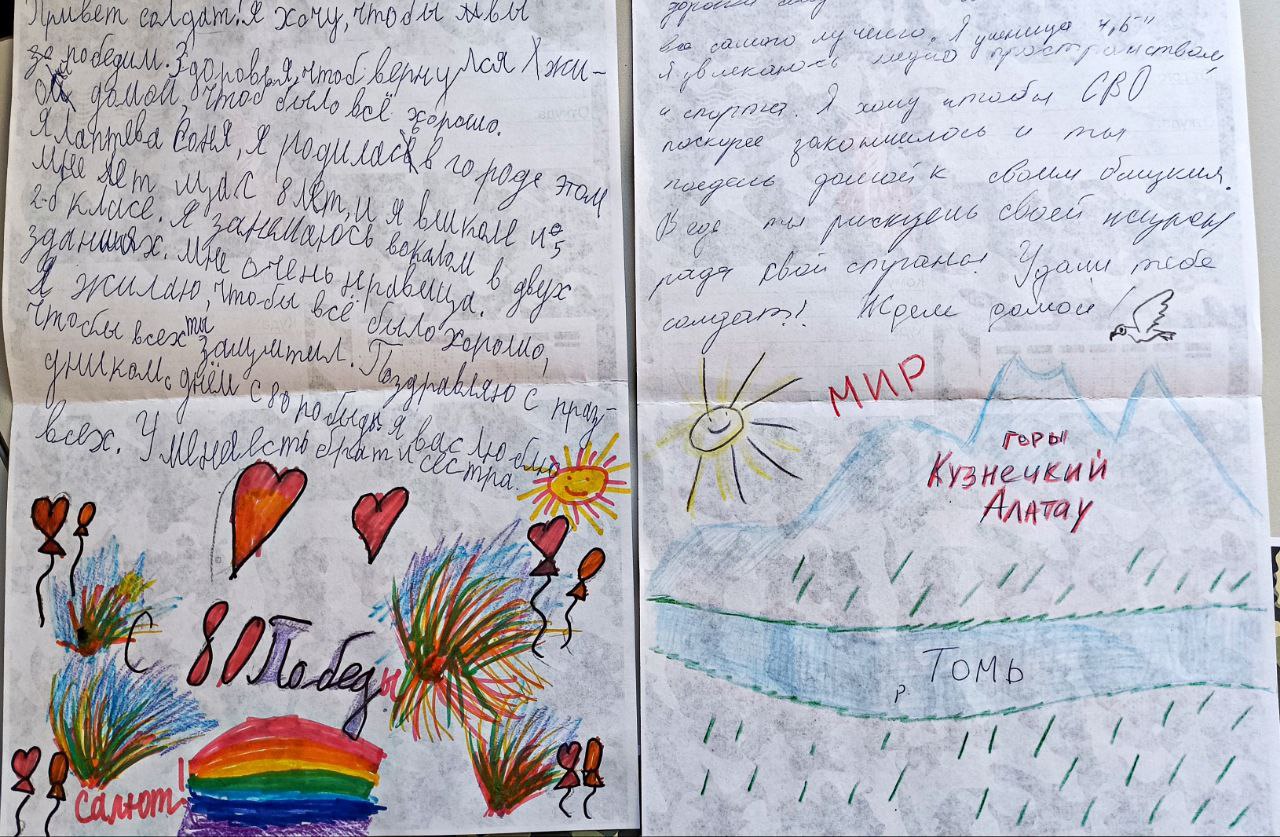 Привет солдат! Я хочу, чтобы мы вы
за победим. Здоровья, чтоб вернулся жи-
ой домой, чтоб было всё хорошо.
Я Лаптева Соня, я родилась в городе этом
мне лет 8 лет, и я вшколе №5
2-б класе. Я занемаюсь вокалом в двух
зданиях. Мне очень нравеца.
Я жилаю, чтобы всё было хорошо,
чтобы всех ты защитил. Поздравляю с праз-
дником, с днём с 80 победы я вас люблю
всех. У меня есть брат и сестра.
С 80 Победы
салют!
дорогой
всего самого лучшего. Я ученица 4 "Б"
Я увлекаюсь медиа пространством,
и спортом. Я хочу чтобы СВО
поскорее закончилось и ты
поедешь домой к своим близким.
Ведь ты рискуешь своей
ради свой страны! Удачи тебе
солдат!! Ждем домой!
МИР
горы
Кузнецкий
Алатау
р. Томь